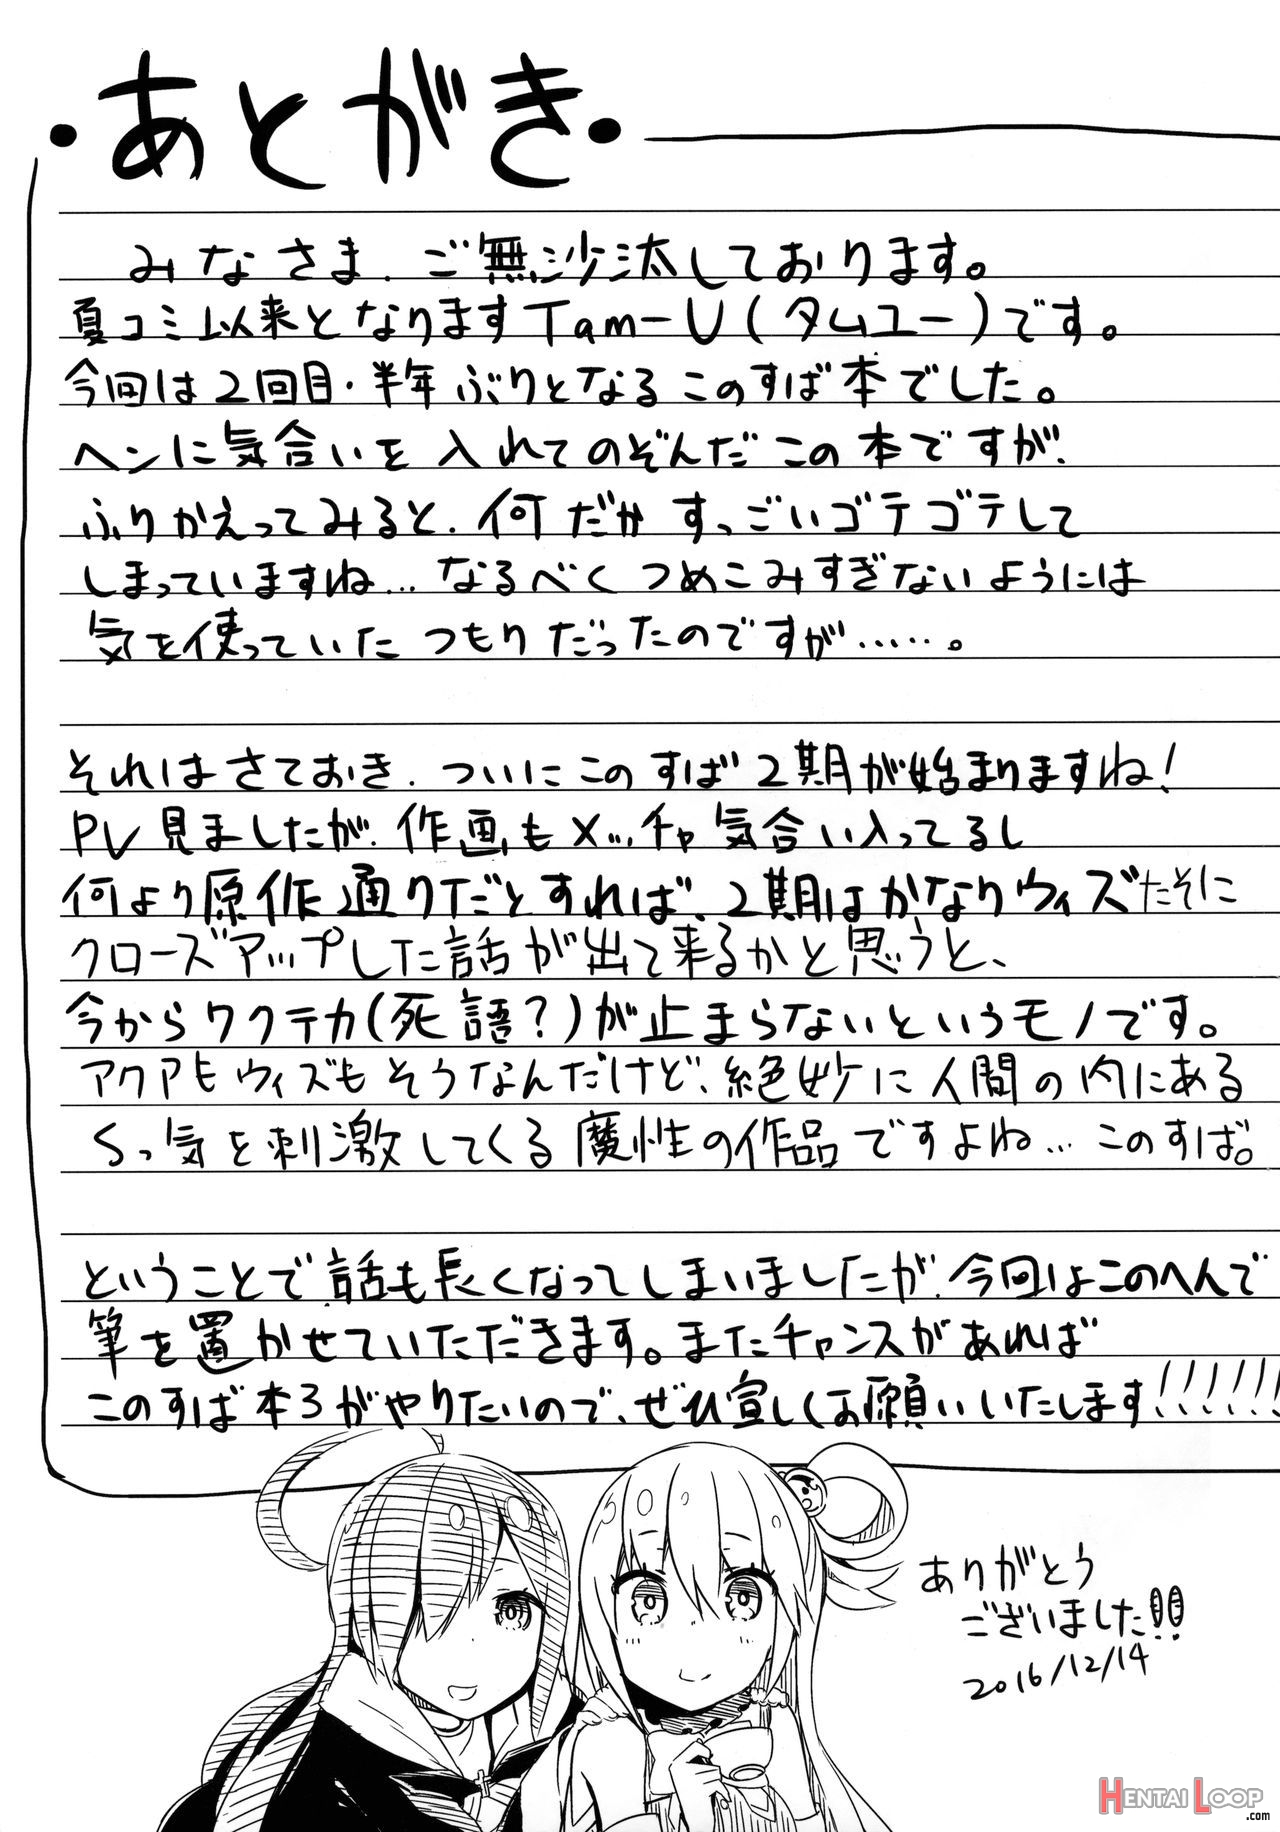 ・あとがき・
みなさま、ご無沙汰しております。
夏コミ以来となりますTam-U(タムユー)です。
今回は2回目・半年ぶりとなるこのすば本でした。
ヘンに気合いを入れてのぞんだこの本ですが、
ふりかえってみると、何だかすっごいゴテゴテして
しまっていますね…なるべくつめこみすぎないようには
気を使っていたつもりだったのですが……。
それはさておき、ついにこのすば2期が始まりますね!
PV見ましたが、作画もメッチャ気合い入ってるし
何より原作通りだとすれば、2期はかなりウィズたそに
クローズアップした話が出て来るかと思うと、
今からワクテカ(死語?)が止まらないというモノです。
アクアもウィズもそうなんだけど、絶妙に人間の内にある
Sっ気を刺激してくる魔性の作品ですよね…このすば。
ということで話も長くなってしまいましたが、今回はこのへんで
筆を置かせていただきます。またチャンスがあれば
このすば本3がやりたいので、ぜひ宜しくお願いいたします!!!!!!
ありがとう
ございました!!
2016/12/14
HENTAI LOOP
.com